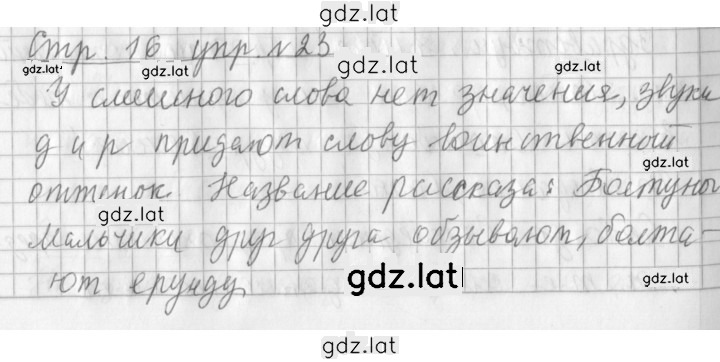 gdz.lat
Стр. 16 упр. №23
gdz.lat gdz.lat gdz.lat
У смешного слова нет значения, звуки
gdz.lat gdz.lat
д и р придают слову воинственный
gdz.lat
оттенок. Название рассказа: Болтуны
gdz.lat
Мальчики друг друга обзывают, болта-
ют ерунду
gdz.lat gdz.lat
gdz.lat